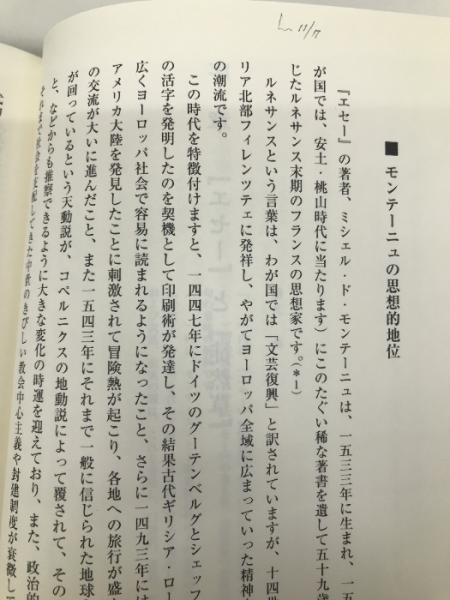 L 11/7
■ モンテーニュの思想的地位
『エセー』の著者、ミシェル・ド・モンテーニュは、一五三三年に生まれ、一五
が国では、安土・桃山時代に当たります）にこのたぐい稀な著書を遺して五十九歳
じたルネサンス末期のフランスの思想家です。（＊1）
ルネサンスという言葉は、わが国では「文芸復興」と訳されていますが、十四世
リア北部フィレンツェに発祥し、やがてヨーロッパ全域に広まっていった精神
の潮流です。
この時代を特徴付けますと、一四四七年にドイツのグーテンベルグとシェッフ
の活字を発明したのを契機として印刷術が発達し、その結果古代ギリシア・ロー
広くヨーロッパ社会で容易に読まれるようになったこと、さらに一四九三年には
アメリカ大陸を発見したことに刺激されて冒険熱が起こり、各地への旅行が盛
の交流が大いに進んだこと、また一五四三年にそれまで一般に信じられた地球
が回っているという天動説が、コペルニクスの地動説によって覆されて、その
と、などからも推察できるように大きな変化の時運を迎えており、また、政治的
教会中心主義や封建制度が衰微して